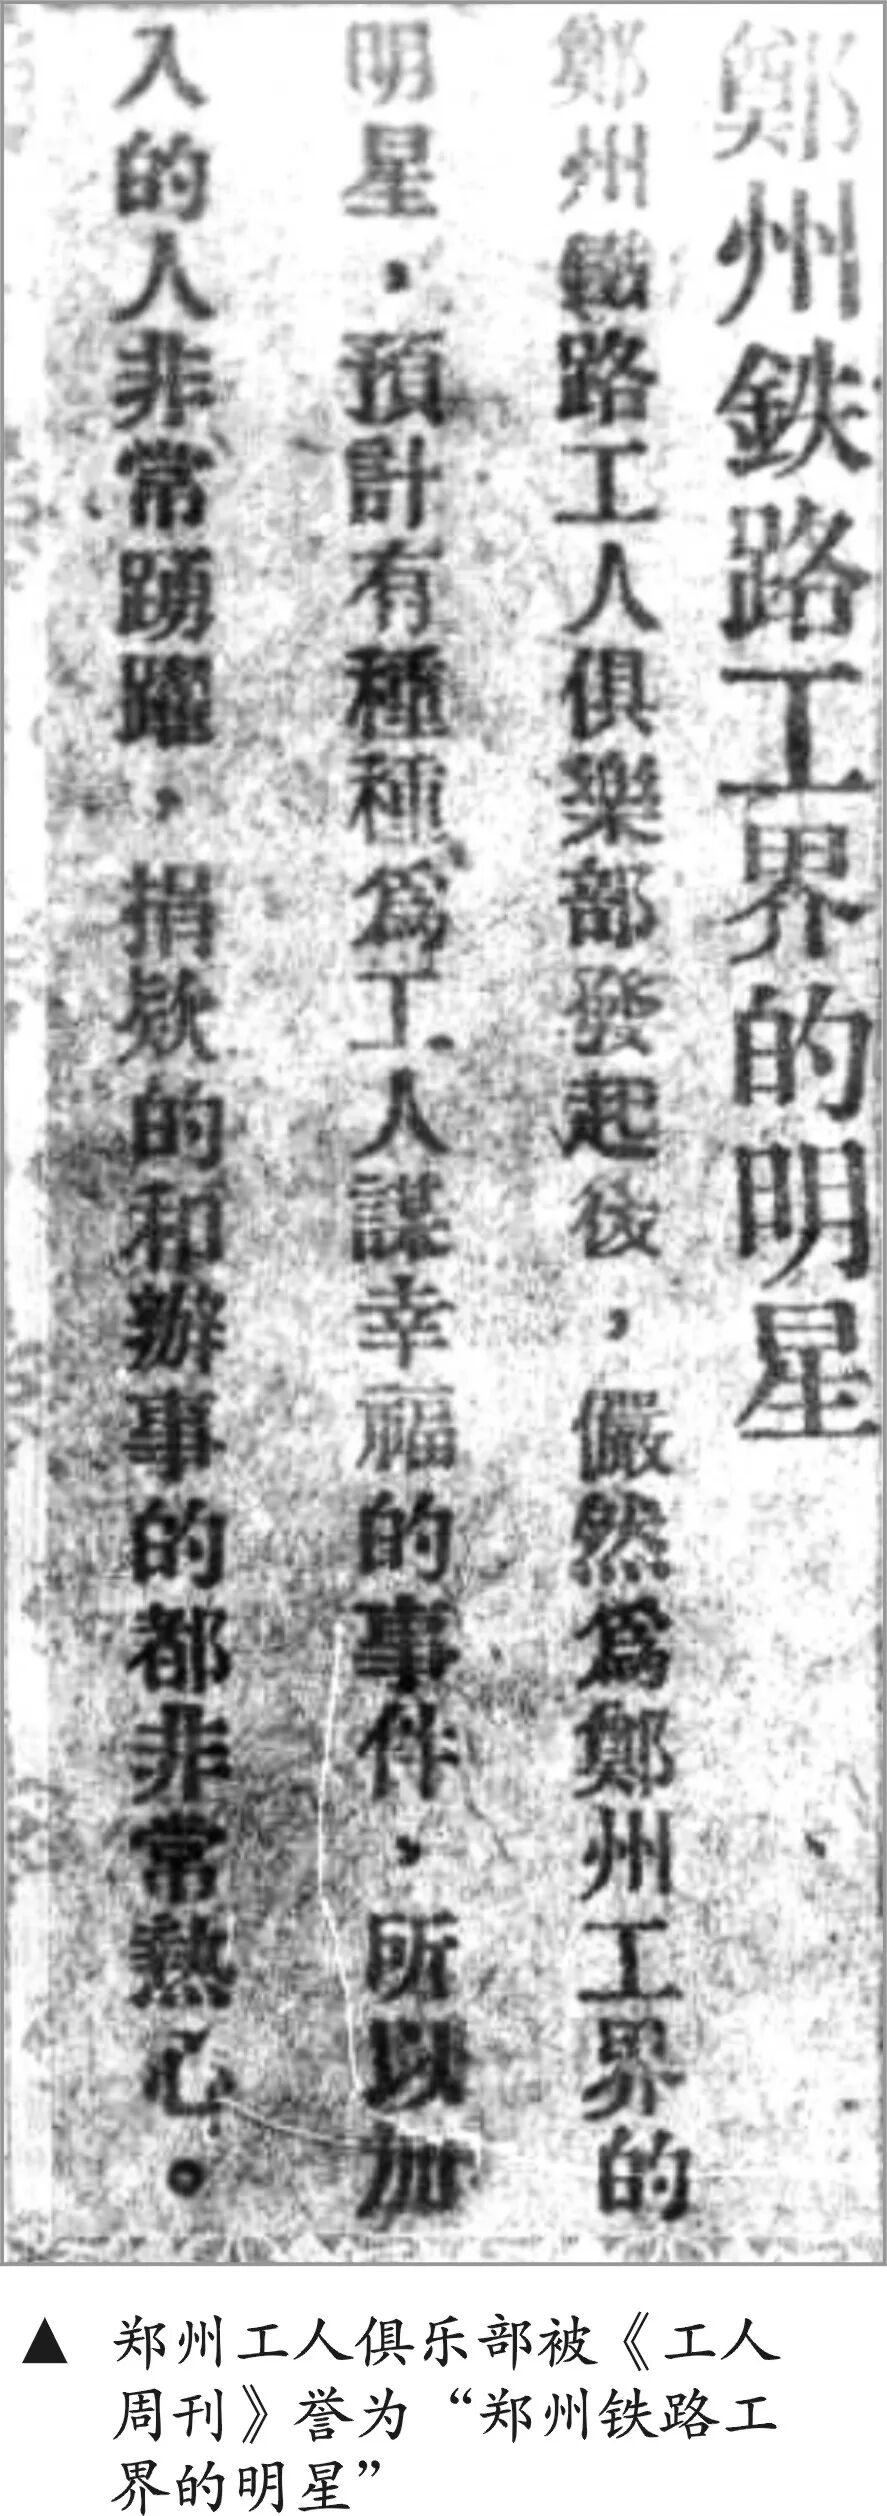 鄭州鉄路工界的明星
鄭州鐵路工人俱樂部發起後，儼然為鄭州工界的
明星，預計有種種為工人謀幸福的事件，所以加
入的人非常踴躍，捐欵的和辦事的都非常熱心。
▲ 郑州工人俱乐部被《工人
周刊》誉为“郑州铁路工
界的明星”